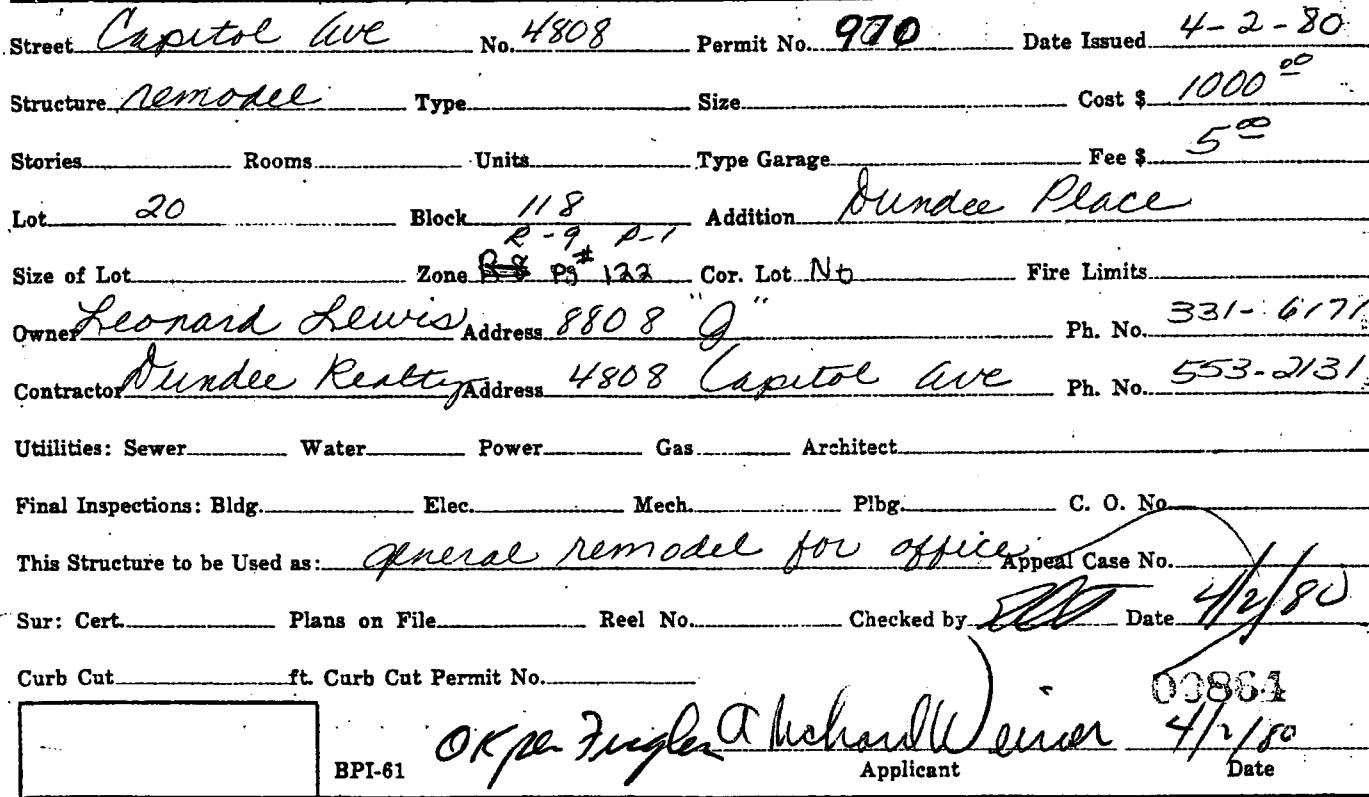 Street Capitol Ave No. 4808 Permit No. 970 Date Issued 4-2-80
Structure remodel Type Size Cost $ 1000 00
Stories Rooms Units Type Garage Fee $ 5 00
Lot 20 Block 118 Addition Dundee Place
R-9 P-1
Size of Lot Zone Pg # 122 Cor. Lot No Fire Limits
Owner Leonard Lewis Address 8808 "J" Ph. No. 331-6171
Contractor Dundee Realty Address 4808 Capitol Ave Ph. No. 553-2131
Utiilities: Sewer Water Power Gas Architect
Final Inspections: Bldg. Elec. Mech. Plbg. C. O. No.
This Structure to be Used as: general remodel for office Appeal Case No.
Sur: Cert. Plans on File Reel No. Checked by Date 4/2/80
Curb Cut ft. Curb Cut Permit No.
00864
OK per A Richard Weiner 4/2/80
BPI-61 Applicant Date